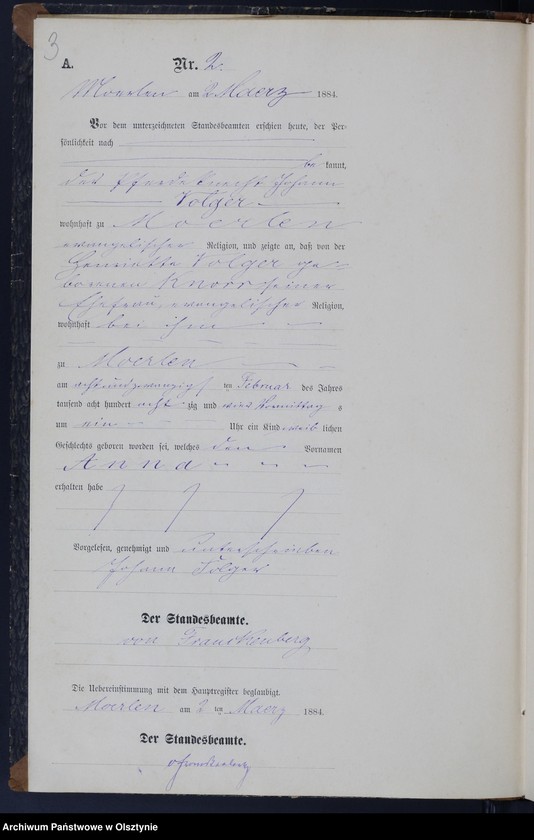 3
A. Nr. 2.
Moerlen am 2 Maerz 1884.
Vor dem unterzeichneten Standesbeamten erschien heute, der Per-
sönlichkeit nach
be kannt,
der Pferdeknecht Johann
Volger
wohnhaft zu Moerlen
evangelischer Religion, und zeigte an, daß von der
Henriette Volger ge-
borenen Knorr seiner
Ehefrau, evangelischer Religion,
wohnhaft bei ihm
zu Moerlen
am achtundzwanzigsten Februar des Jahres
tausend acht hundert acht zig und vier Vormittags
um ein Uhr ein Kind weib lichen
Geschlechts geboren worden sei, welches den Vornamen
Anna
erhalten habe
Vorgelesen, genehmigt und unterschrieben
Johann Folger
Der Standesbeamte.
von Franckenberg
Die Uebereinstimmung mit dem Hauptregister beglaubigt.
Moerlen am 2 ten Maerz 1884.
Der Standesbeamte.
vFranckenberg
Archiwum Państwowe w Olsztynie